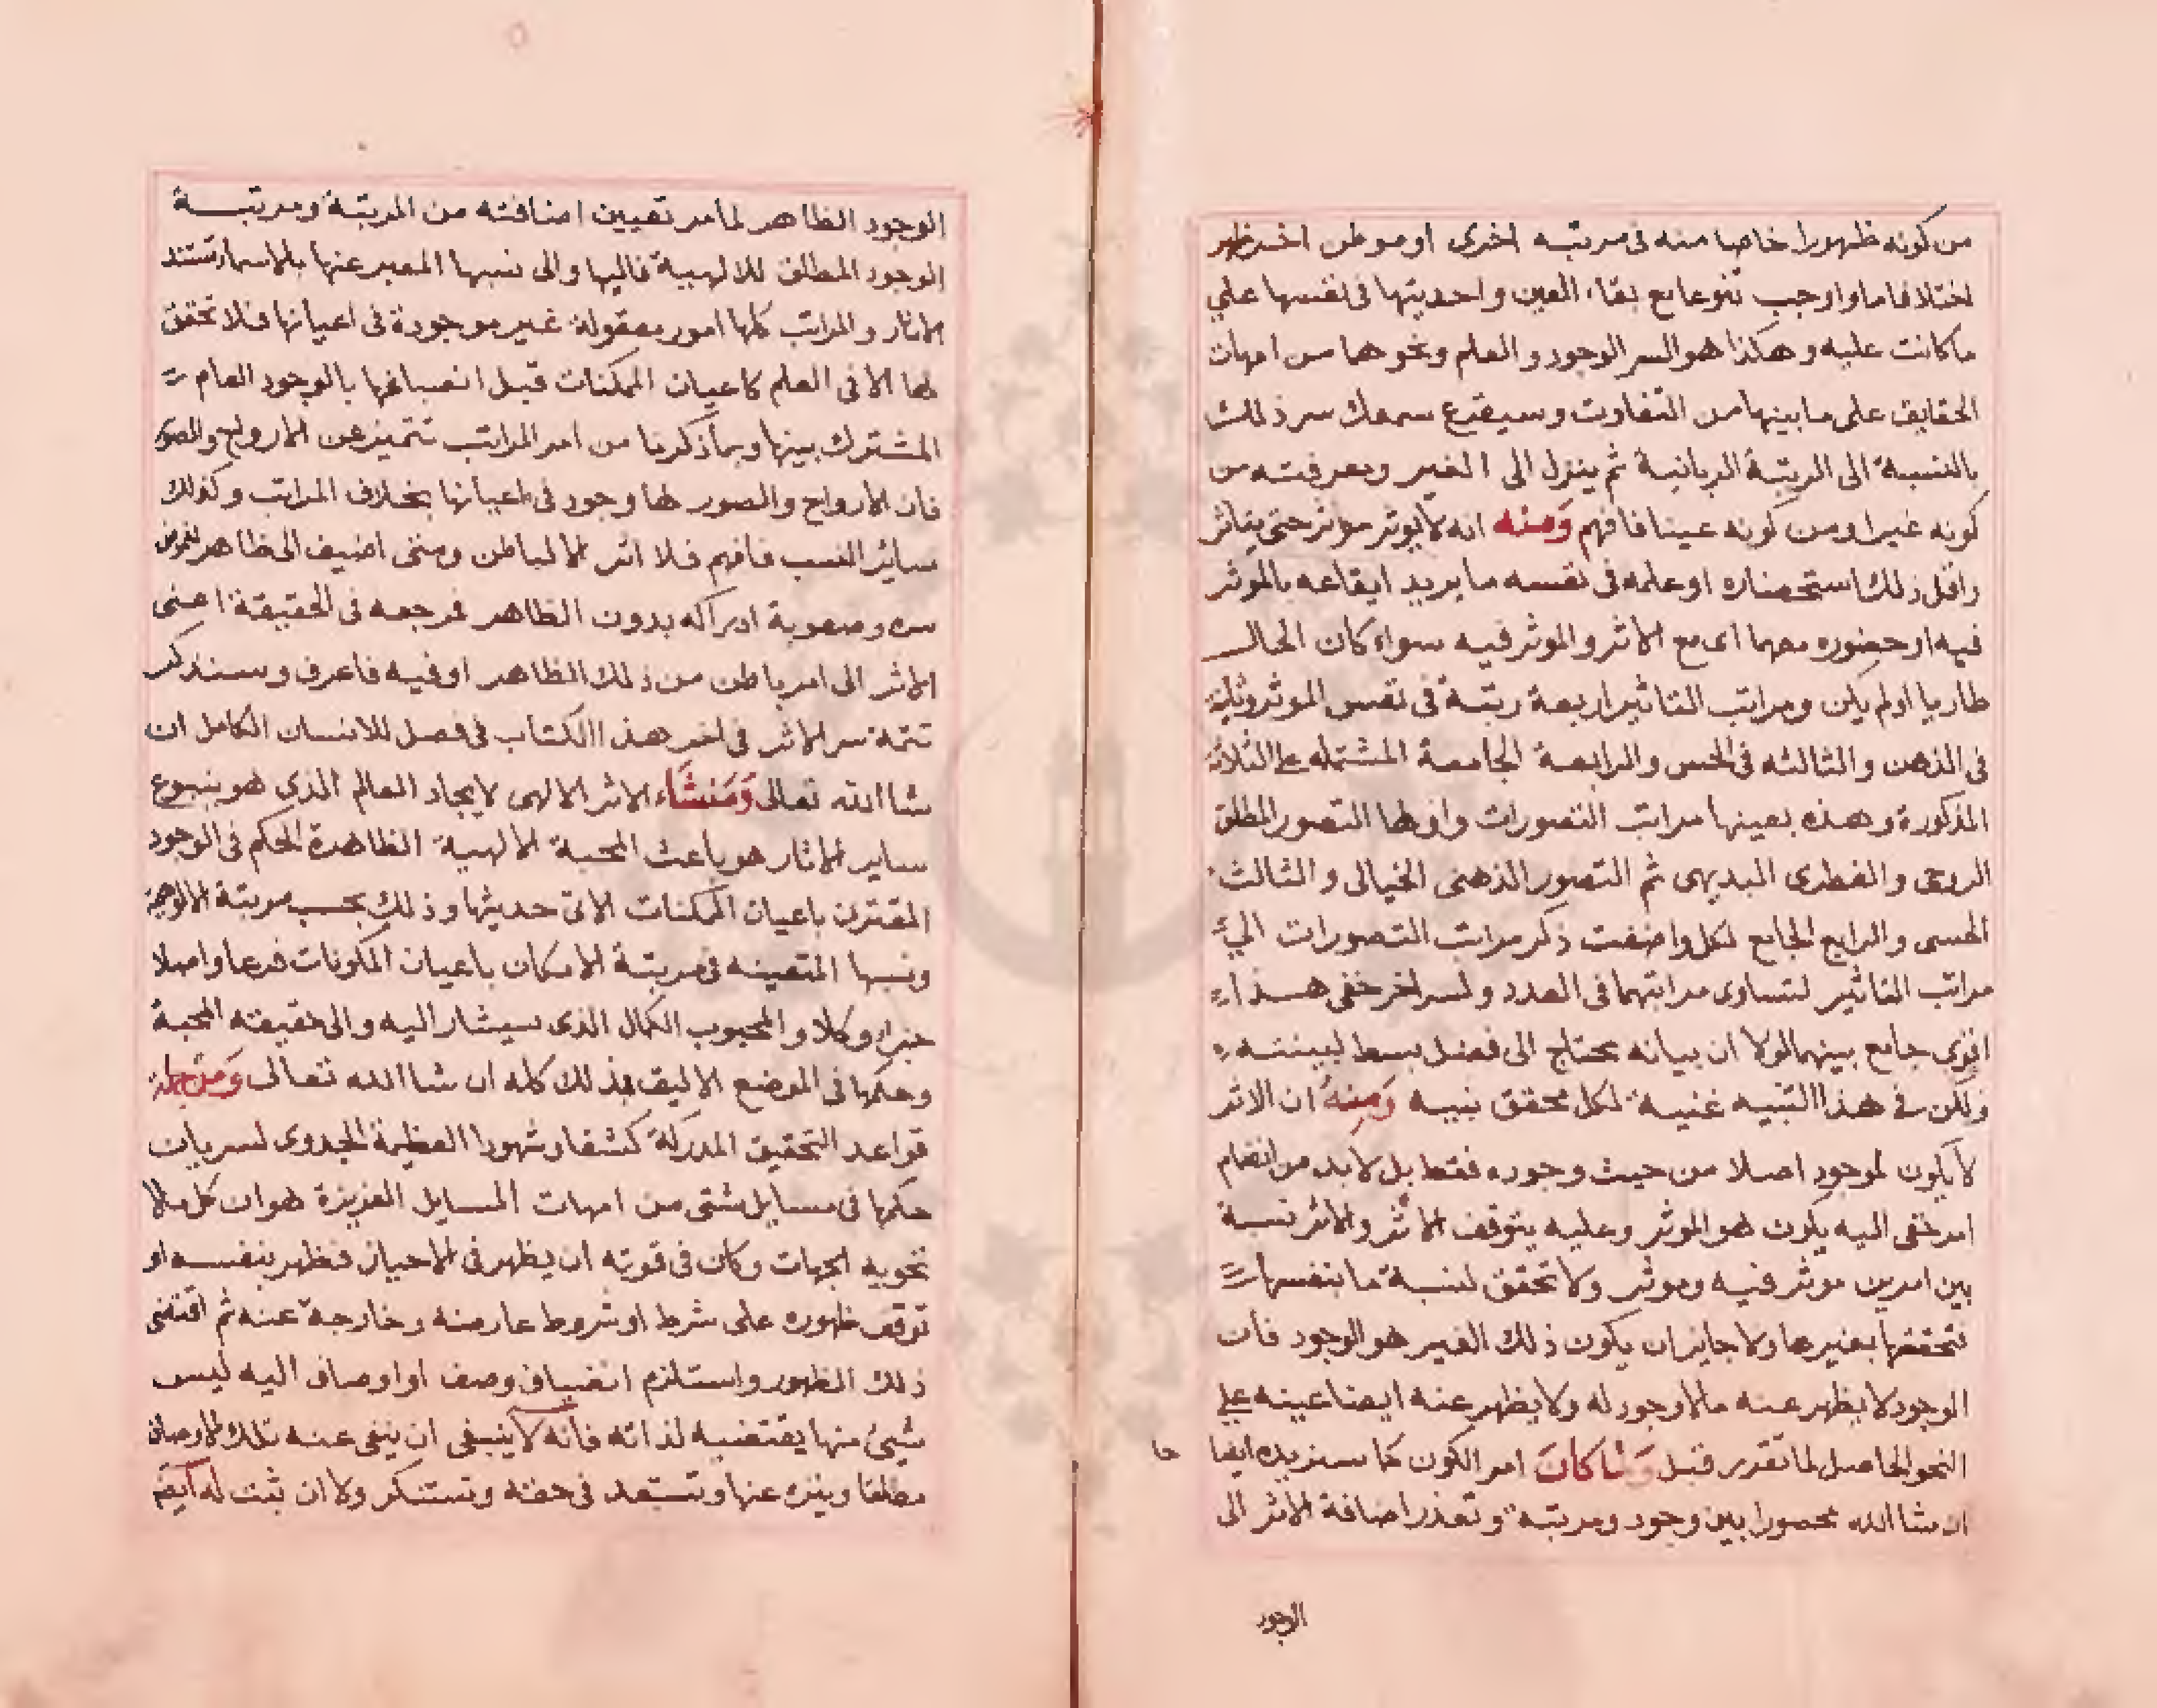 من كونه ظهورا خاصا منه فى مرتبه اخرى او موطن اخر ظهر
اختلافا ما واوجب تنوعا مع بقاء العين واحديتها فى نفسها علي
ما كانت عليه وهكذا هو السر الوجود والعلم ونحوهما من امهات
الحقايق على ما بينها من التفاوت وسيقرع سمعك سر ذلك
بالنسبة الى الرتبة الربانية ثم ينزل الى الغير ومعرفته من
كونه غيرا ومن كونه عينا فافهم وَمنه انه لا يوثر موثر حتى يتاثر
واقل ذلك استحضاره او علمه فى نفسه ما يريد ايقاعه بالموثر
فيه او حضوره معهما اى مع الاثر والموثر فيه سواء كان الحال
طاريا اولم يكن ومراتب التاثير اربعة رتبة فى نفس الموثر وثانية
فى الذهن والثالثه فى الحس والرابعة الجامعة المشتمله على الثلاثة
المذكورة وهذه بعينها مراتب التصورات واولها التصور المطلق
الروحى والفطرى البديهى ثم التصور الذهنى الخيالى والثالث
الحسى والرابع الجامع لكل واضفت ذكر مراتب التصورات الي
مراتب التاثير لتساوى مراتبهما فى العدد ولسر اخر خفى هذا
اقوى جامع بينهما لولا ان بيانه يحتاج الى فضل بسط لبينته
ولكن فى هذا التنبيه غنية لكل محقق نبيه وَمنهُ ان الاثر
لا يكون لموجود اصلا من حيث وجوده فقط بل لا بد من انضمام
امر خفى اليه يكون هو الموثر وعليه يتوقف الاثر والاثر نسبة
بين امرين موثر فيه وموثر ولا تحقق لنسبة ما بنفسها
فتحققها بغيرها ولا جايز ان يكون ذلك الغير هو الوجود فان
الوجود لا يظهر عنه مالا وجود له ولا يظهر عنه ايضا عينه على
النحو الحاصل لما تقرر قبل وَلما كانَ امر الكون كما سنزيده ايضا حا
ان شا الله محصورا بين وجود ومرتبة وتعذر اضافة الاثر الى
الوجود
الوجود الظاهر لما مر تعيين اضافته من المرتبة ومرتبة
الوجود المطلق للالهية فاليها والى نسبها المعبر عنها بالاسما تستند
الاثار والمراتب كلها امور معقولة غير موجودة فى اعيانها فلا تحقق
لها الا فى العلم كاعيان الممكنات قبل انصباغها بالوجود العام
المشترك بينها وبما ذكرنا من امر المراتب تتميز عن الارواح والصور
فان الارواح والصور لها وجود فى اعيانها بخلاف المراتب وكذلك
سائر النسب فافهم فلا اثر الا لباطن ومتى اضيف الى ظاهر لغموض
سره وصعوبة ادراكه بدون الظاهر فمرجعه فى الحقيقة اعنى
الاثر الى امر باطن من ذلك الظاهر او فيه فاعرف وسنذكر
تتمة سر الاثر فى اخر هذا الكتاب فى فصل للانسان الكامل ان
شا الله تعالى وَمَنشَاء الاثر الالهى لايجاد العالم الذى هو ينبوع
ساير الاثار هو باعث المحبة الالهية الظاهرة الحكم فى الوجود
المقترن باعيان الممكنات الاتى حديثها وذلك بحسب مرتبة الالوهية
ونسبها المتعينه فى مرتبة الامكان باعيان المكونات فرعا واصلا
جزاء وكلا والمحبوب الكمال الذى سيشار اليه والى حقيقته المحبة
وحكمها فى الموضع الاليق بذلك كله ان شا الله تعالى وَمن جملة
قواعد التحقيق المدركة كشفا وشهودا العظيمة الجدوى لسريان
حكمها فى مسايل شتى من امهات المسايل العزيزة هو ان كل مالا
تحويه الجهات وكان فى قوته ان يظهر فى الاحياز فظهر بنفسه او
توقف ظهوره على شرط او شروط عارضه وخارجة عنه ثم اقتضى
ذلك الظهور واستلزم انضياف وصف او اوصاف اليه ليس
شيئ منها يقتضيه لذاته فانه لا ينبغى ان ينفى عنه تلك الاوصاف
مطلقا وينزه عنها وتستبعد فى حقه وتستنكر ولا ان تثبت له ايضا